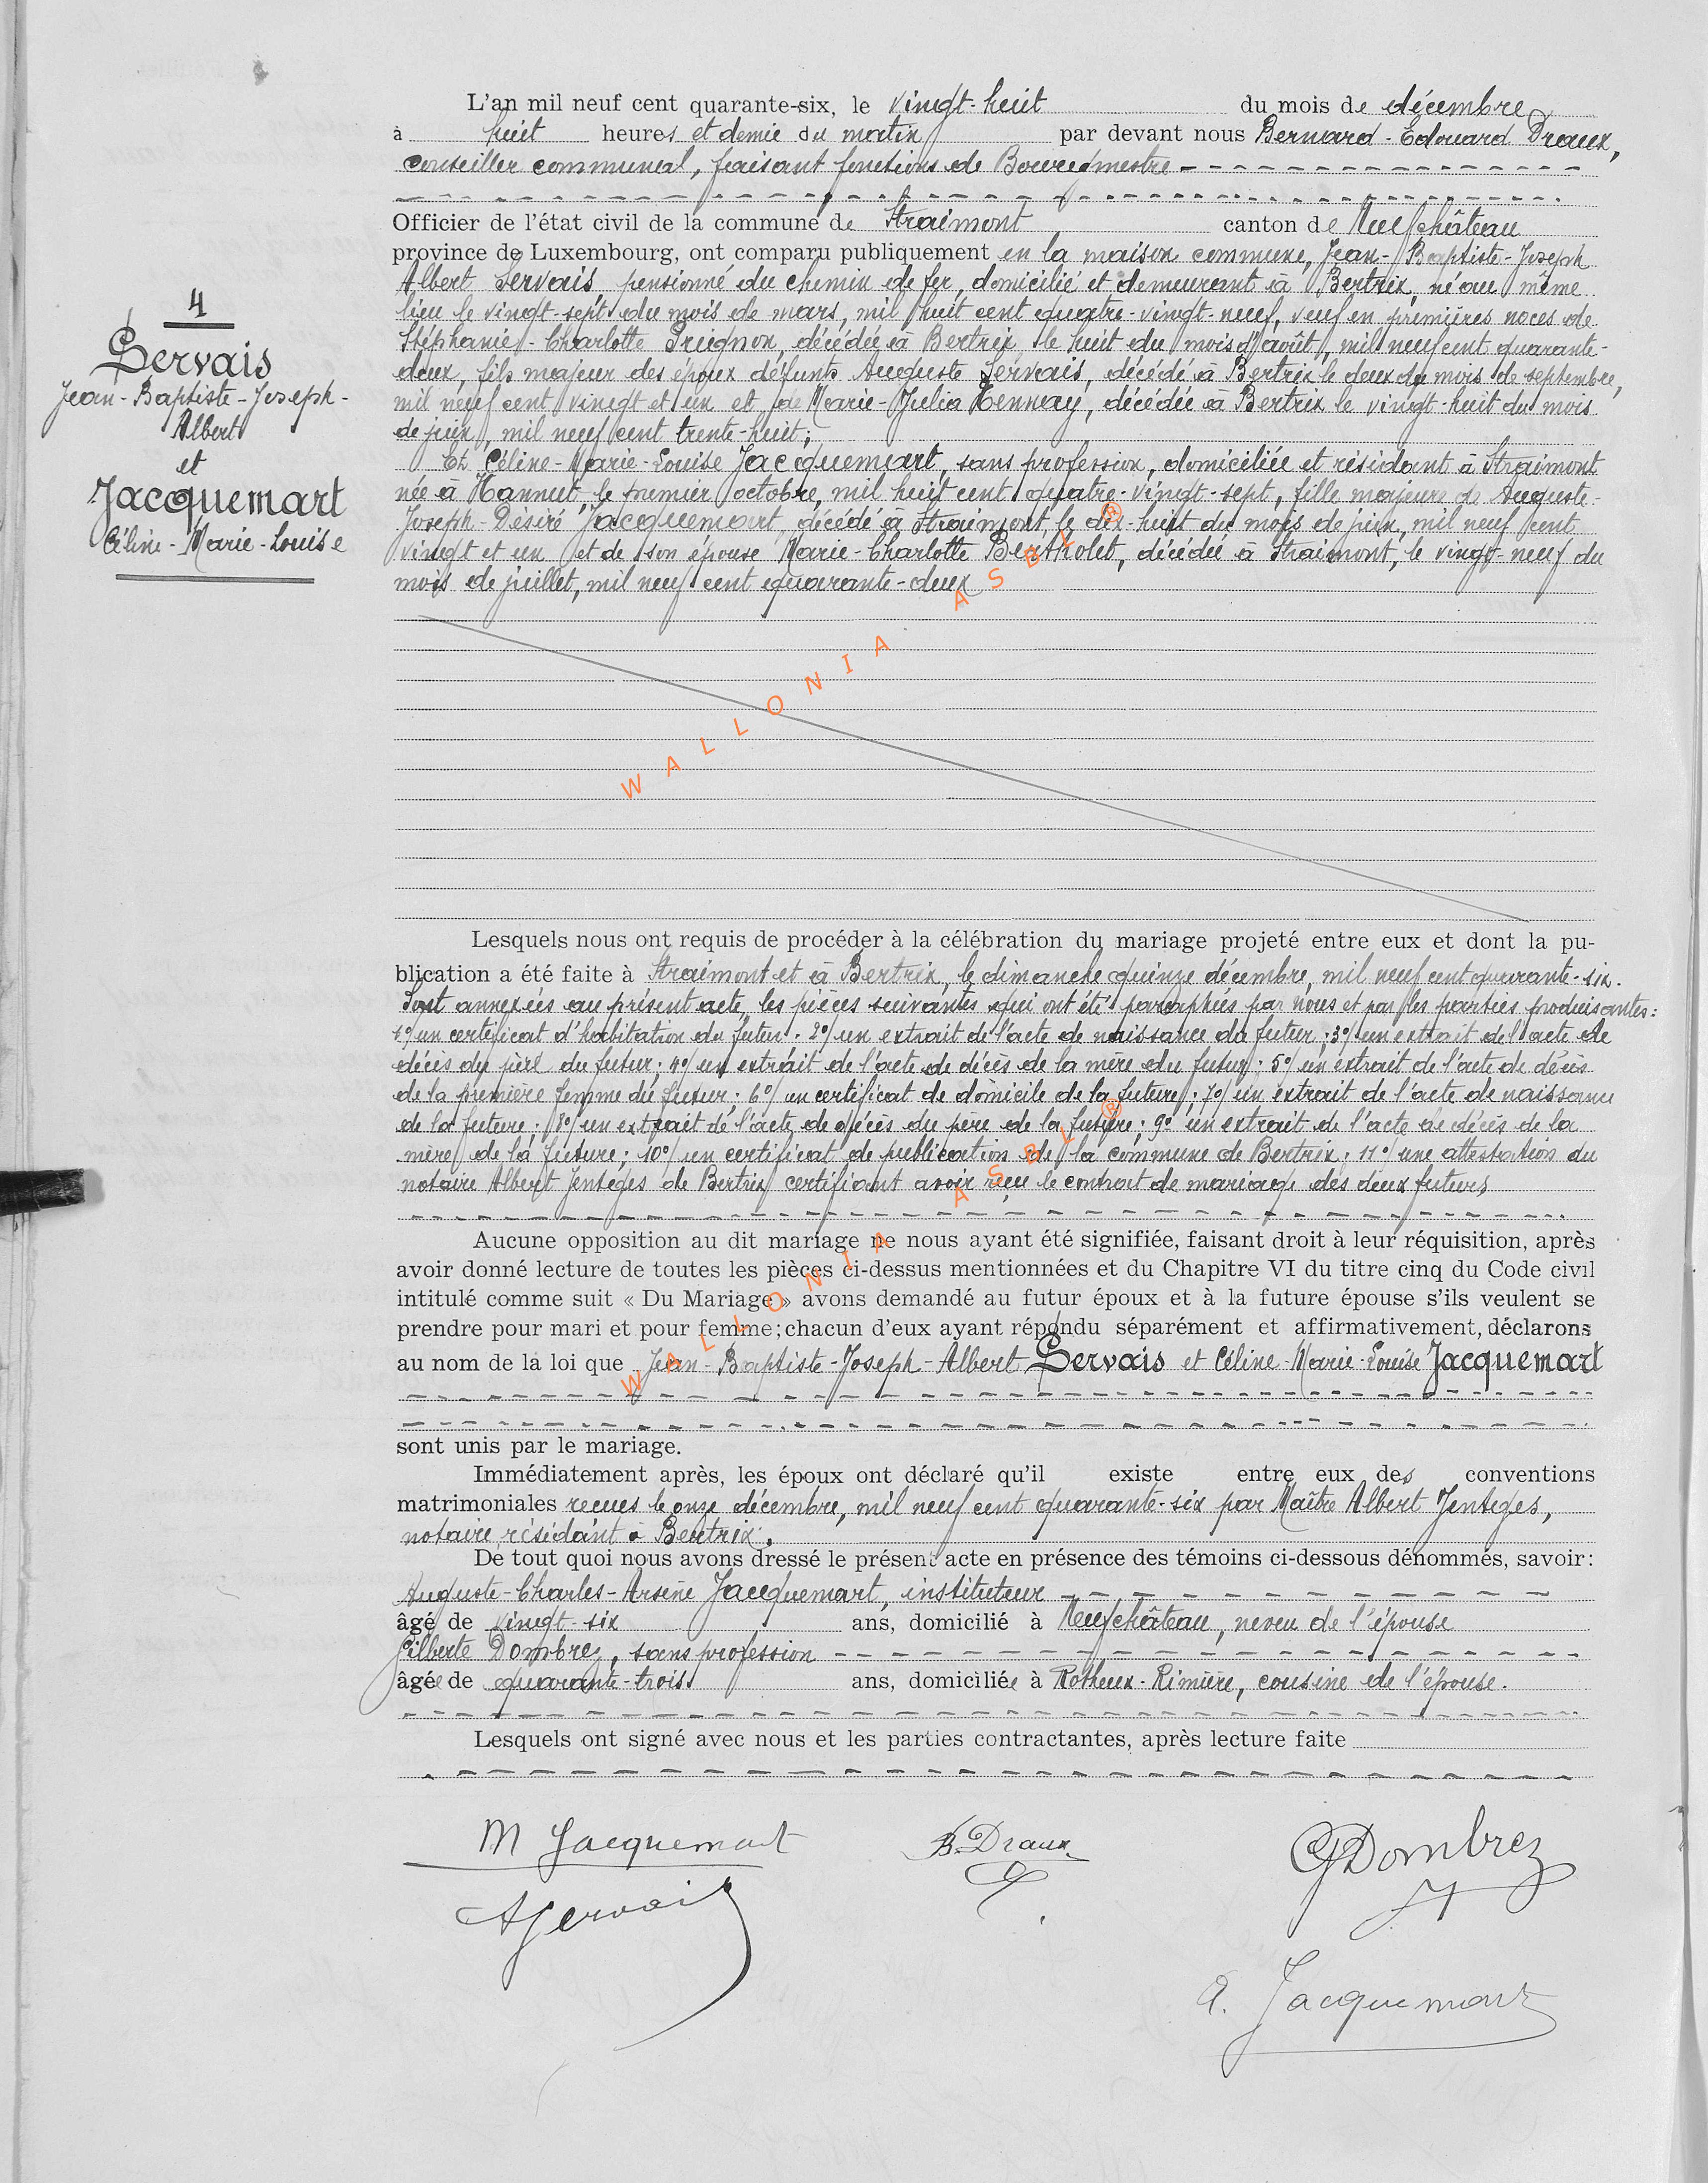 4
Servais
Jean-Baptiste-Joseph-
Albert
et
Jacquemart
Céline-Marie-Louise
L'an mil neuf cent quarante-six, le vingt-huit du mois de décembre
à huit heures et demie du matin par devant nous Bernard-Edouard Draux,
conseiller communal, faisant fonctions de Bourgmestre
Officier de l'état civil de la commune de Straimont canton de Neufchâteau
province de Luxembourg, ont comparu publiquement en la maison commune, Jean-Baptiste-Joseph
Albert Servais pensionné du chemin de fer, domicilié et demeurant à Bertrix, né au même
lieu le vingt-sept du mois de mars, mil huit cent quatre-vingt-neuf, veuf en premières noces de
Stéphanie-Charlotte décédée à Bertrix, le huit du mois d'août, mil neuf cent quarante-
deux, fils majeur des époux défunts Auguste Servais, décédé à Bertrix le deux du mois de septembre,
mil neuf cent vingt et un et de Marie-Julia Hennay, décédée à Bertrix le vingt-huit du mois
de juin, mil neuf cent trente-huit;
Et Céline-Marie-Louise Jacquemart, sans profession, domiciliée et résidant à Straimont
née à Hannut, le premier octobre, mil huit cent quatre-vingt-sept, fille majeure de Auguste-
Joseph-Désiré Jacquemart, décédé à Straimont, le dix-huit du mois de juin, mil neuf cent
vingt et un et de son épouse Marie-Charlotte Bertholet, décédée à Straimont, le vingt-neuf du
mois de juillet, mil neuf cent quarante-deux
WALLONIA ASBL ®
Lesquels nous ont requis de procéder à la célébration du mariage projeté entre eux et dont la pu-
blication a été faite à Straimont et à Bertrix, le dimanche quinze décembre, mil neuf cent quarante-six.
Sont annexées au présent acte, les pièces suivantes qui ont été paraphées par nous et par les parties produisantes:
1°/ un certificat d'habitation du futur; 2°/ un extrait de l'acte de naissance du futur; 3°/ un extrait de l'acte de
décès du père du futur; 4°/ un extrait de l'acte de décès de la mère du futur; 5°/ un extrait de l'acte de décès
de la première femme du futur; 6°/ un certificat de domicile de la future; 7°/ un extrait de l'acte de naissance
de la future; 8°/ un extrait de l'acte de décès du père de la future; 9° un extrait de l'acte de décès de la
mère de la future; 10°/ un certificat de publication de la commune de Bertrix; 11°/ une attestation du
notaire Albert Jentges de Bertrix certifiant avoir reçu le contrat de mariage des deux futurs
Aucune opposition au dit mariage ne nous ayant été signifiée, faisant droit à leur réquisition, après
avoir donné lecture de toutes les pièces ci-dessus mentionnées et du Chapitre VI du titre cinq du Code civil
intitulé comme suit « Du Mariage » avons demandé au futur époux et à la future épouse s'ils veulent se
prendre pour mari et pour femme; chacun d'eux ayant répondu séparément et affirmativement, déclarons
au nom de la loi que Jean-Baptiste-Joseph-Albert Servais et Céline-Marie-Louise Jacquemart
WALLONIA ASBL ®
sont unis par le mariage.
Immédiatement après, les époux ont déclaré qu'il existe entre eux des conventions
matrimoniales reçues le onze décembre, mil neuf cent quarante-six par Maître Albert Jentges,
notaire, résidant à Bertrix.
De tout quoi nous avons dressé le présent acte en présence des témoins ci-dessous dénommés, savoir:
Auguste-Charles-Arsène Jacquemart, instituteur
âgé de vingt-six ans, domicilié à Neufchâteau, neveu de l'épouse
Gilberte Dombrez, sans profession
âgée de quarante-trois ans, domiciliée à Rotheux-Rimière, cousine de l'épouse.
Lesquels ont signé avec nous et les parties contractantes, après lecture faite
M Jacquemart
B. Draux
GDombrez
AServais
A. Jacquemart